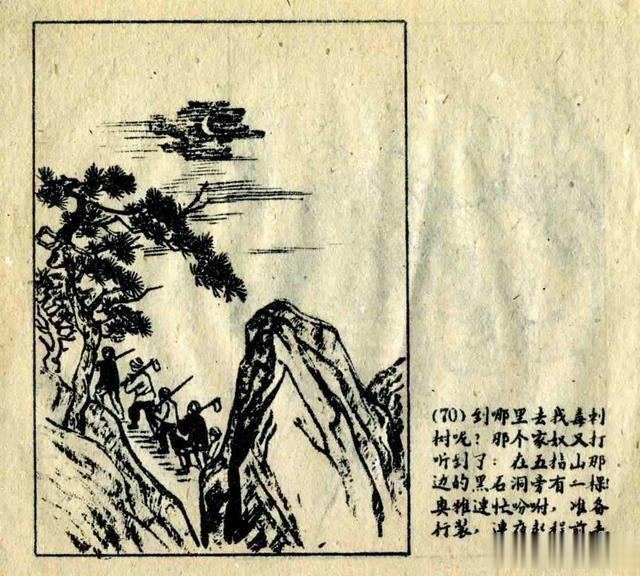 (70)到哪里去找毒刺
树呢？那个家奴又打
听到了：在五指山那
边的黑石洞旁有一棵
奥雅连忙吩咐，准备
行装，连夜起程前去